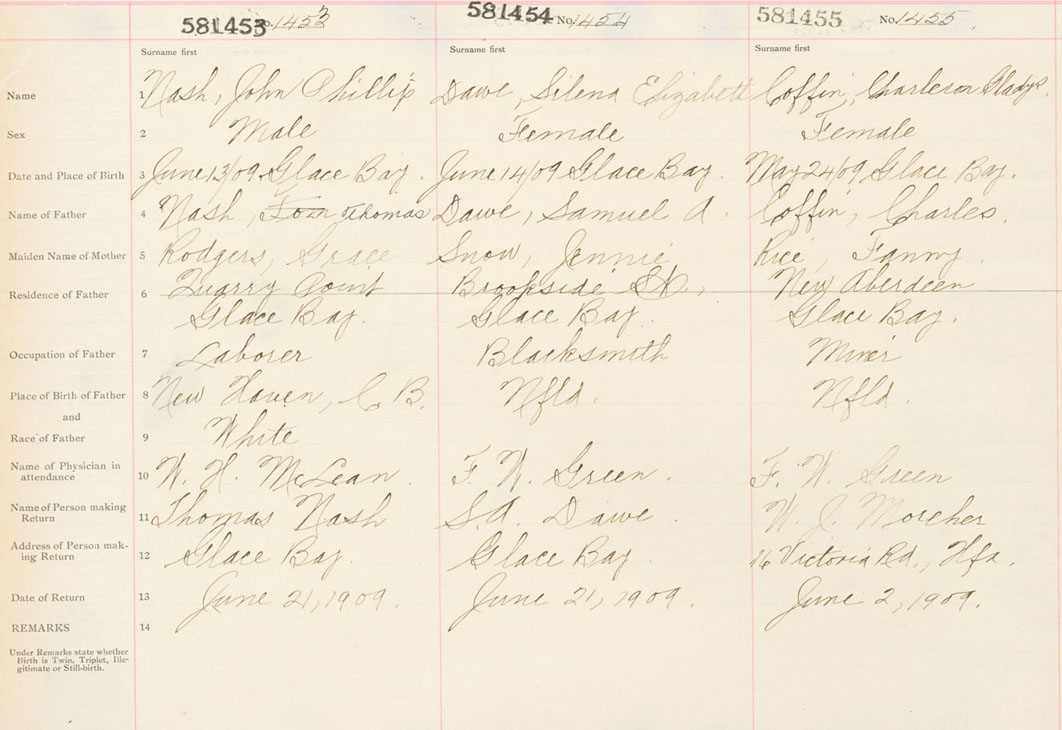 581453 No. 1453 581454 No. 1454 581455 No. 1455
Surname first Surname first Surname first
Name 1 Nash, John Phillip Dawe, Silena Elizabeth Coffin, Charleson Gladys
Sex 2 Male Female Female
Date and Place of Birth 3 June 13/09 Glace Bay. June 14/09 Glace Bay. May 24/09 Glace Bay.
Name of Father 4 Nash, Tom Thomas Dawe, Samuel A. Coffin, Charles.
Maiden Name of Mother 5 Rodgers, Grace Snow, Jennie Rice, Fanny.
Residence of Father 6 Quarry Point Brookside St., New Aberdeen
Glace Bay. Glace Bay. Glace Bay.
Occupation of Father 7 Laborer Blacksmith Miner
Place of Birth of Father 8 New Haven, C.B. Nfld. Nfld.
and
Race of Father 9 White
Name of Physician in
attendance 10 W. H. McLean. F. W. Green. F. W. Green
Name of Person making
Return 11 Thomas Nash S.A. Dawe. W. J.
Address of Person mak-
ing Return 12 Glace Bay. Glace Bay. 16 Victoria Rd., Hfx.
Date of Return 13 June 21, 1909. June 21, 1909. June 2, 1909.
REMARKS 14
Under Remarks state whether
Birth is Twin, Triplet, Ille-
gitimate or Still-birth.